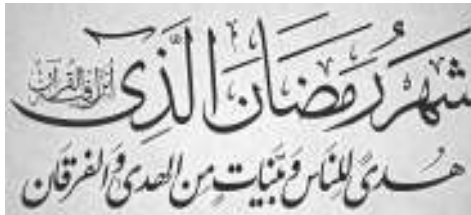 شَهْرُ رَمَضَانَ الَّذِى أنزل فيه القرآن
هُدىً لِلنَّاسِ وَبَيِّنَاتٍ مِنَ الهدى وَالفرقان